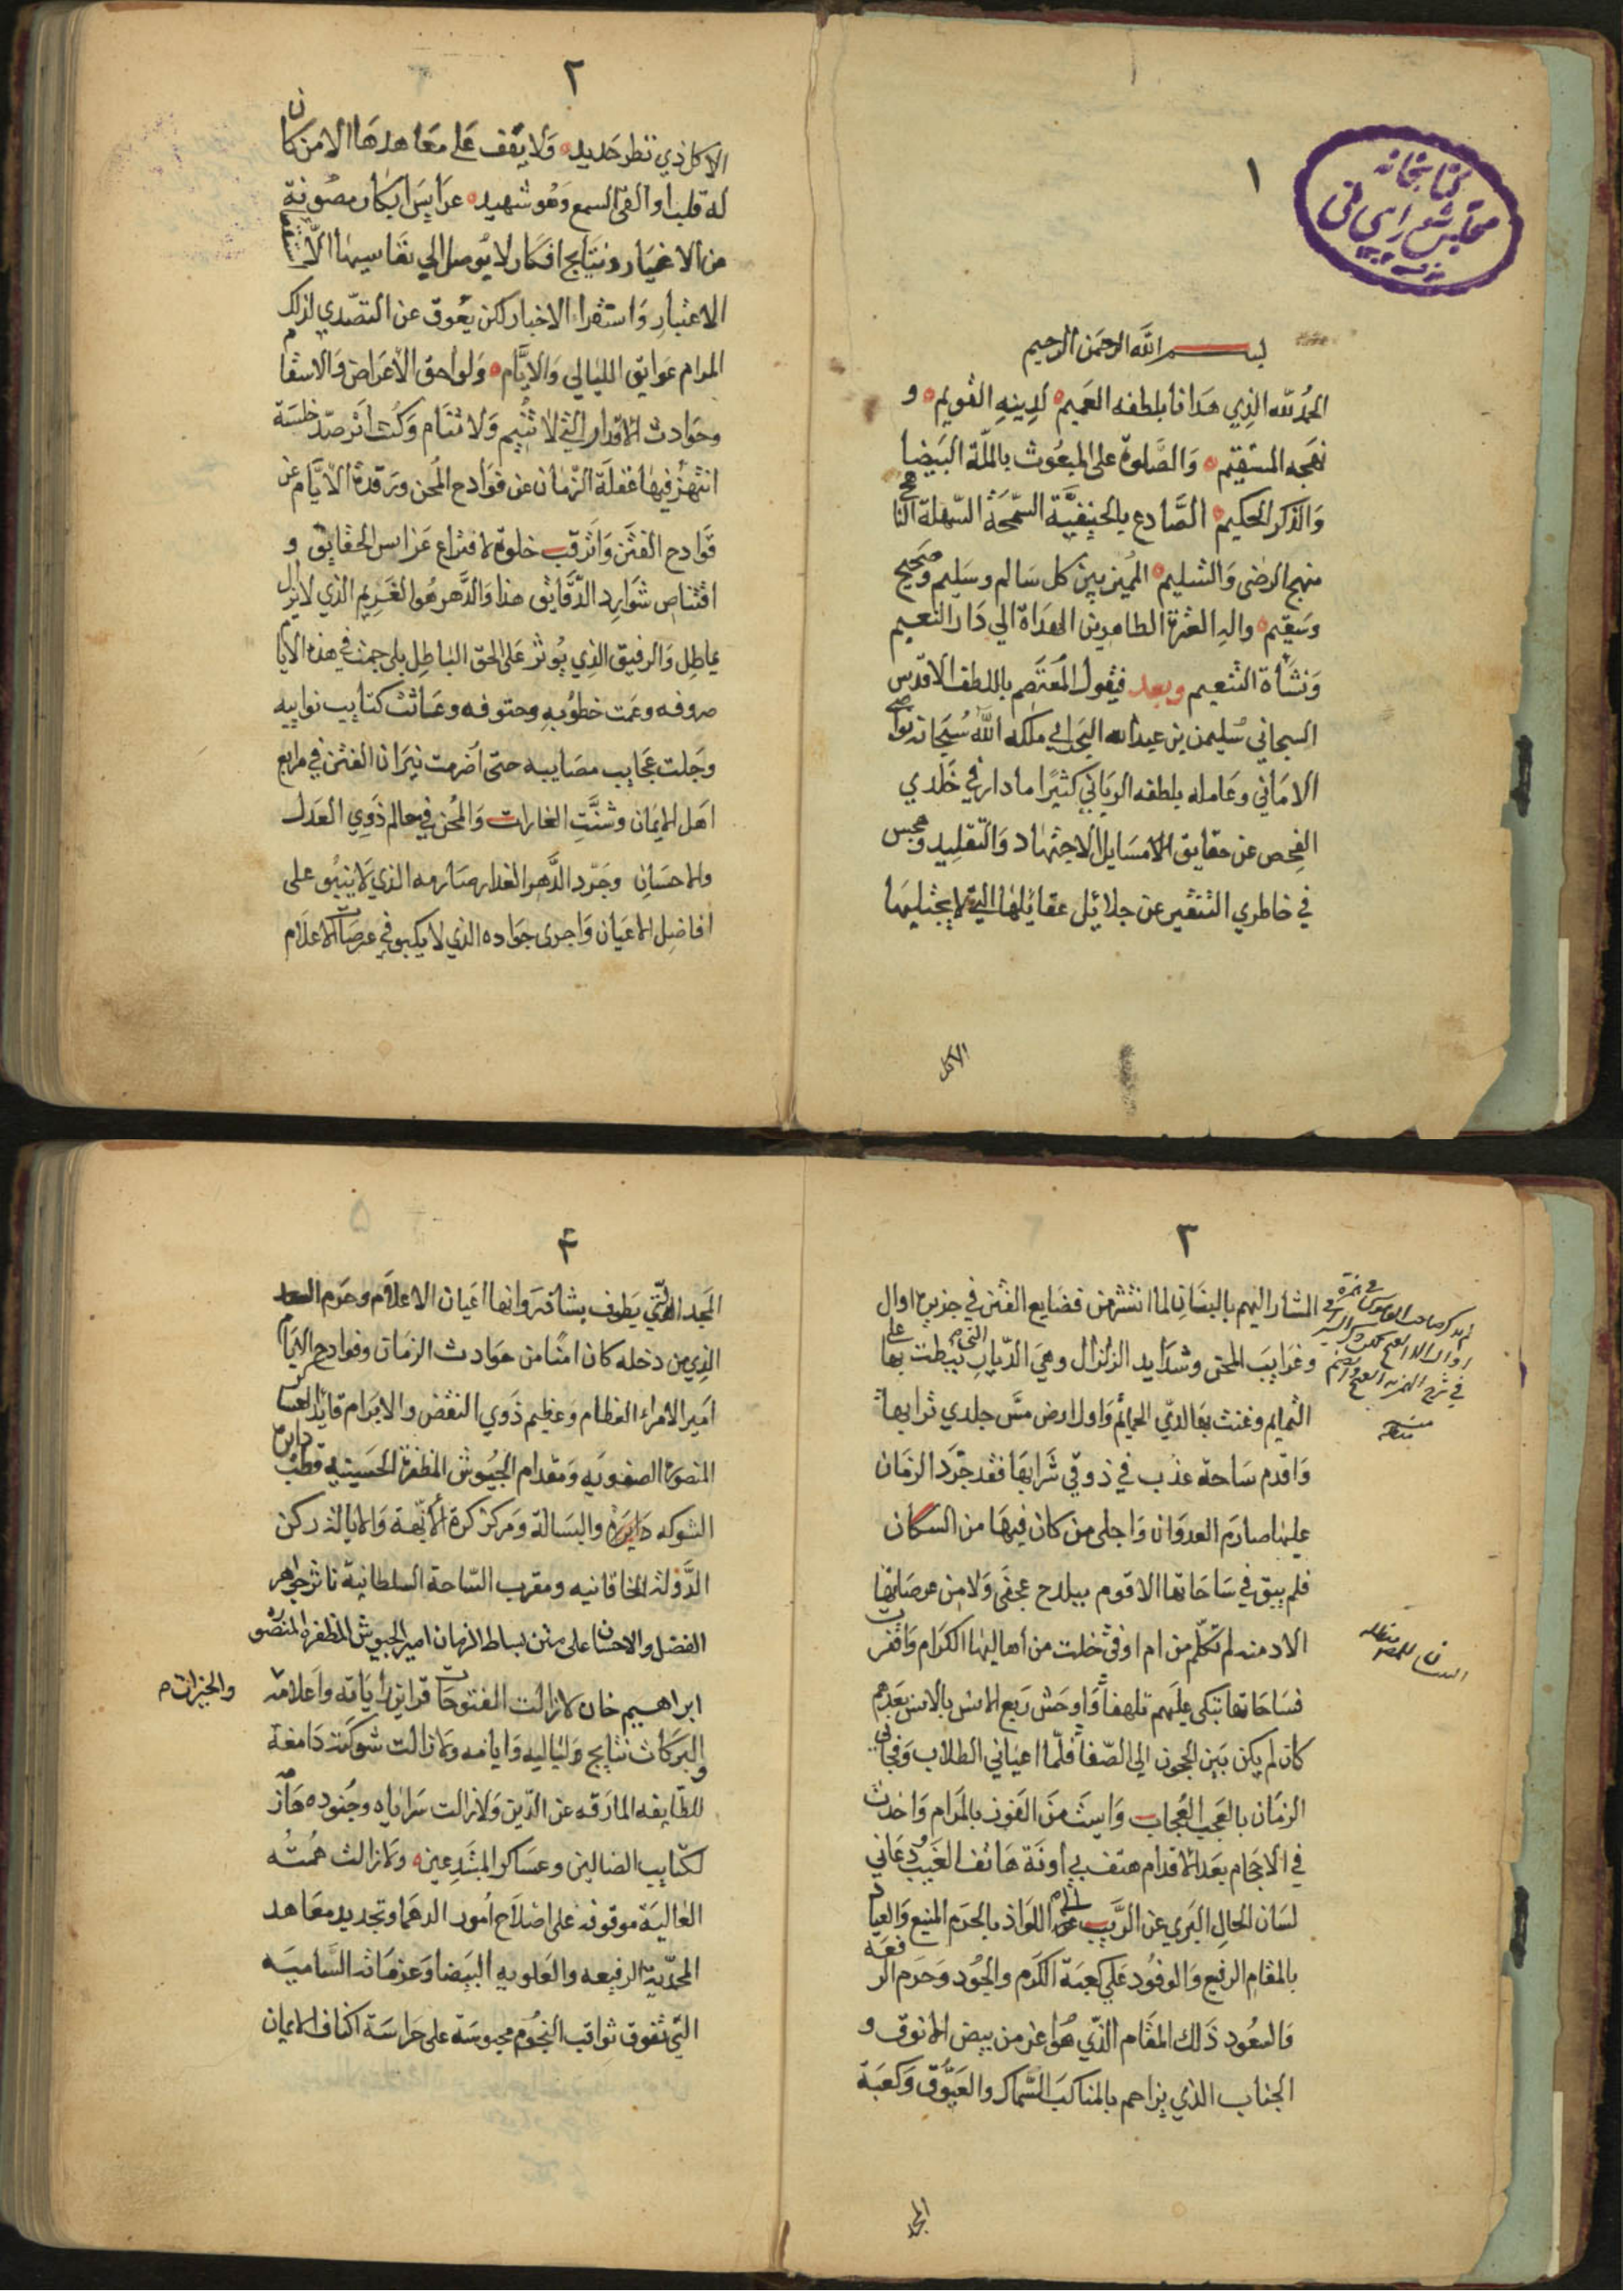 ١
كتابخانه
مجلس شوراى ملى
بسم الله الرحمن الرحيم
الحمد لله الذي هدانا بلطفه العميم لدينه القويم و
نهجه المستقيم والصلوة على المبعوث بالملة البيضا
والذكر الحكيم الصادع بالحنيفية السمحة السهلة الناهج
منهج الرضى والتسليم المميز بين كل سالم وسليم وصحيح
وسقيم واله العترة الطاهرين الهداة الي دار النعيم
ونشأة التنعيم وبعد فيقول المعتصم باللطف الاقدس
السبحاني سليمن بن عبدالله البحراني ملكه الله سبحانه نواصي
الاماني وعامله بلطفه الرباني كثيرا ما دار في خلدي
الفحص عن حقايق مسايل الاجتهاد والتقليد وهجس
في خاطري التنقير عن جلائل عقائلها التي لا يجتليها
الاكل
٢
الاكل ذي نظر حديد ولا يقف على معاهدها الا من كان
له قلب او القى السمع وهو شهيد عرايس ابكار مصونة
من الاغيار ونتايج افكار لا يوصل الي نفايسها الا
الاعتبار واستقراء الاخبار لكن يعوق عن التصدي لذلك
المرام عوايق الليالي والايام ولواحق الاعراض والاسقام
وحوادث الاقدار التي لا تنيم ولا تنام وكنت اترصد خلسة
انتهز فيها غفلة الزمان عن فوادح المحن ورقدة الايام عن
قوادح الفتن واترقب خلوة لافتراع عرايس الحقايق و
اقتناص شوارد الدقايق هذا والدهر هو الغريم الذي لا يزال
يماطل والرفيق الذي يوثر على الحق الباطل بلى جمت في هذه الايام
صروفه وعمت خطوبه وحتوفه وعاثت كتايب نوايبه
وجلت عجايب مصايبه حتى اضرمت نيران الفتن في مرابع
اهل الايمان وشنت الغارات والمحن في معالم ذوي العدل
والاحسان وجرد الدهر الغدار صارمه الذي لا ينبو على
افاضل الاعيان واجرى جواده الذي لا يكبو في عرصات الاعلام
٣
المشار اليهم بالبنان لما انتشر من فضايع الفتن في جزيرة اوال
وغرايب المحن وشدايد الزلزال وهي الديار التي نيطت بها علي
التمايم وغنت بها لديّ الحمائم واول ارض مسّ جلدي ترابها
واقدم ساحة عذب في ذوقي شرابها فقد جرد الزمان
عليها صارم العدوان واجلى من كان فيها من السكان
فلم يبق في ساحاتها الا قوم ببلدح عجفى ولا من عرصاتها
الا دمنه لم تكلم من ام اوفى خلت من أهاليها الكرام واقفرت
فساحاتها تبكي عليهم تلهفاً واوحش ربع الانس بالانس بعدهم
كان لم يكن بين الحجون الى الصفا فلما اعياني الطلاب وفجاني
الزمان بالعجب العجاب وايست من الفوز بالمرام واخذت
في الاحجام بعد الاقدام هتف بي أونة هاتف الغيب ودعاني
لسان الحال البري عن الريب الى اللواذ بالحرم المنيع والعياذ
بالمقام الرفيع والوفود على كعبة الكرم والجود وحرم الرفعة
والسعود ذلك المقام الذي هو اعز من بيض الانوق و
الجناب الذي يزاحم بالمناكب السماك والعيوق وكعبة
المجد
٤
المجد التي يطوف بشاذروانها اعيان الاعلام وحرم السعد
الذي من دخله كان امنا من حوادث الزمان وفوادح الايام
امير الامراء العظام وعظيم ذوي النقض والابرام قايد العساكر
المنصورة الصفويه ومقدام الجيوش المظفرة الحسينيه قطب دايرة
الشوكه والبسالة ومركز كرة الابهة والايالة ركن
الدولة الخاقانيه ومقرب الساحة السلطانية ناثر جواهر
الفضل والاحسان على متن بساط الزمان امير الجيوش المظفرة المنصوره
ابراهيم خان لا زالت الفتوحات قراين راياته واعلامه
والخيرات
والبركات نتايج لياليه وايامه ولا زالت شوكته دامغة
للطايفه المارقه عن الدين ولا زالت سراياه وجنوده هازمة
لكتايب الضالين وعساكر المبتدعين ولا زالت همته
العالية موقوفة على اصلاح أمور الدهما وتجديد معاهد
المحمدية الرفيعه والعلويه البيضا وعزماته الساميه
التي تفوق ثواقب النجوم محبوسة على حراسة اكناف الايمان